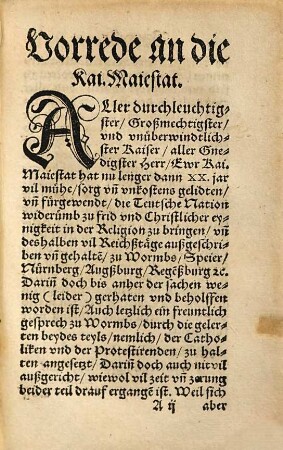 Vorrede an die
Kai. Maiestat.
ALler durchleuchtig-
ster/ Großmechtigster/
vnd vnüberwindtlich-
ster Kaiser/ aller Gne-
digster Herr/ Ewr Kai.
Maiestat hat nu lenger dann XX. jar
vil mühe/ sorg vñ vnkostens gelidten/
vñ fürgewende/ die Teutsche Nation
widerumb zu frid vnd Christlicher ey-
nigkeit in der Religion zu bringen/ vñ
deshalben vil Reichßtäge außgeschri-
ben vñ gehaltē/ zu Wormbs/ Speier/
Nürnberg/ Augßburg/ Regēßburg ꝛc.
Dariñ doch biß anher der sachen we-
nig (leider) gerhaten vnd beholffen
worden ist/ Auch letzlich ein freuntlich
gesprech zu Wormbs/ durch die geler-
ten beydes teyls/ nemlich/ der Catho-
liken vnd der Protestirenden/ zu hal-
ten angesetzt/ Dariñ doch auch nit vil
außgericht/ wiewol vil zeit vñ zerung
beider teil drauf ergangē ist. Weil sich
A ij aber